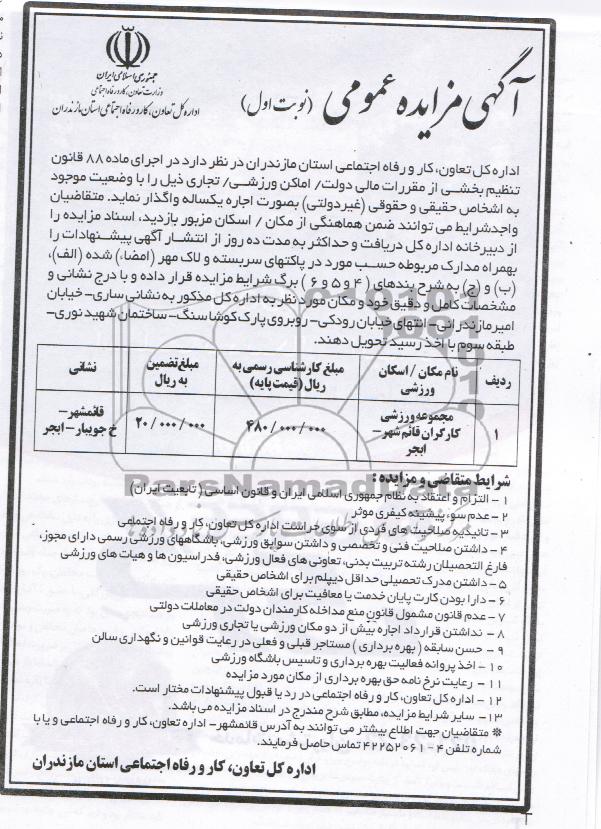 جمهوری اسلامی ایران
وزارت تعاون، کار و رفاه اجتماعی
اداره کل تعاون، کار و رفاه اجتماعی استان مازندران
آگهی مزایده عمومی (نوبت اول)
اداره کل تعاون، کار و رفاه اجتماعی استان مازندران در نظر دارد در اجرای ماده ۸۸ قانون
تنظیم بخشی از مقررات مالی دولت/ اماکن ورزشی/ تجاری ذیل را با وضعیت موجود
به اشخاص حقیقی و حقوقی (غیردولتی) بصورت اجاره یکساله واگذار نماید. متقاضیان
واجدشرایط می توانند ضمن هماهنگی از مکان / اسکان مزبور بازدید، اسناد مزایده را
از دبیرخانه اداره کل دریافت و حداکثر به مدت ده روز از انتشار آگهی پیشنهادات را
بهمراه مدارک مربوطه حسب مورد در پاکتهای سربسته و لاک مهر (امضاء) شده (الف)،
(ب) و (ج) به شرح بندهای (۴ و ۵ و ۶) برگ شرایط مزایده قرار داده و با درج نشانی و
مشخصات کامل و دقیق خود و مکان مورد نظر به اداره کل مذکور به نشانی ساری- خیابان
امیرمازندرانی- انتهای خیابان رودکی- روبروی پارک کوشا سنگ- ساختمان شهید نوری-
طبقه سوم با اخذ رسید تحویل دهند.
ردیف | نام مکان / اسکان ورزشی | مبلغ کارشناسی رسمی به ریال (قیمت پایه) | مبلغ تضمین به ریال | نشانی
۱ | مجموعه ورزشی کارگران قائم شهر- ابجر | ۴۸۰/۰۰۰/۰۰۰ | ۲۰/۰۰۰/۰۰۰ | قائمشهر- خ جویبار- ابجر
شرایط متقاضی و مزایده :
۱ - التزام و اعتقاد به نظام جمهوری اسلامی ایران و قانون اساسی (تابعیت ایران)
۲ - عدم سوء پیشینه کیفری موثر
۳ - تائیدیه صلاحیت های فردی از سوی حراست اداره کل تعاون، کار و رفاه اجتماعی
۴ - داشتن صلاحیت فنی و تخصصی و داشتن سوابق ورزشی، باشگاههای ورزشی رسمی دارای مجوز،
فارغ التحصیلان رشته تربیت بدنی، تعاونی های فعال ورزشی، فدراسیون ها و هیات های ورزشی
۵ - داشتن مدرک تحصیلی حداقل دیپلم برای اشخاص حقیقی
۶ - دارا بودن کارت پایان خدمت یا معافیت برای اشخاص حقیقی
۷ - عدم قانون مشمول قانون منع مداخله کارمندان دولت در معاملات دولتی
۸ - نداشتن قرارداد اجاره بیش از دو مکان ورزشی یا تجاری ورزشی
۹ - حسن سابقه (بهره برداری) مستاجر قبلی و فعلی در رعایت قوانین و نگهداری سالن
۱۰ - اخذ پروانه فعالیت بهره برداری و تاسیس باشگاه ورزشی
۱۱ - رعایت نرخ نامه حق بهره برداری از مکان مورد مزایده
۱۲ - اداره کل تعاون، کار و رفاه اجتماعی در رد یا قبول پیشنهادات مختار است.
۱۳- سایر شرایط مزایده، مطابق شرح مندرج در اسناد مزایده می باشد.
* متقاضیان جهت اطلاع بیشتر می توانند به آدرس قائمشهر- اداره تعاون، کار و رفاه اجتماعی و یا با
شماره تلفن ۴-۴۲۲۵۲۰۶۱ تماس حاصل فرمایند.
اداره کل تعاون، کار و رفاه اجتماعی استان مازندران